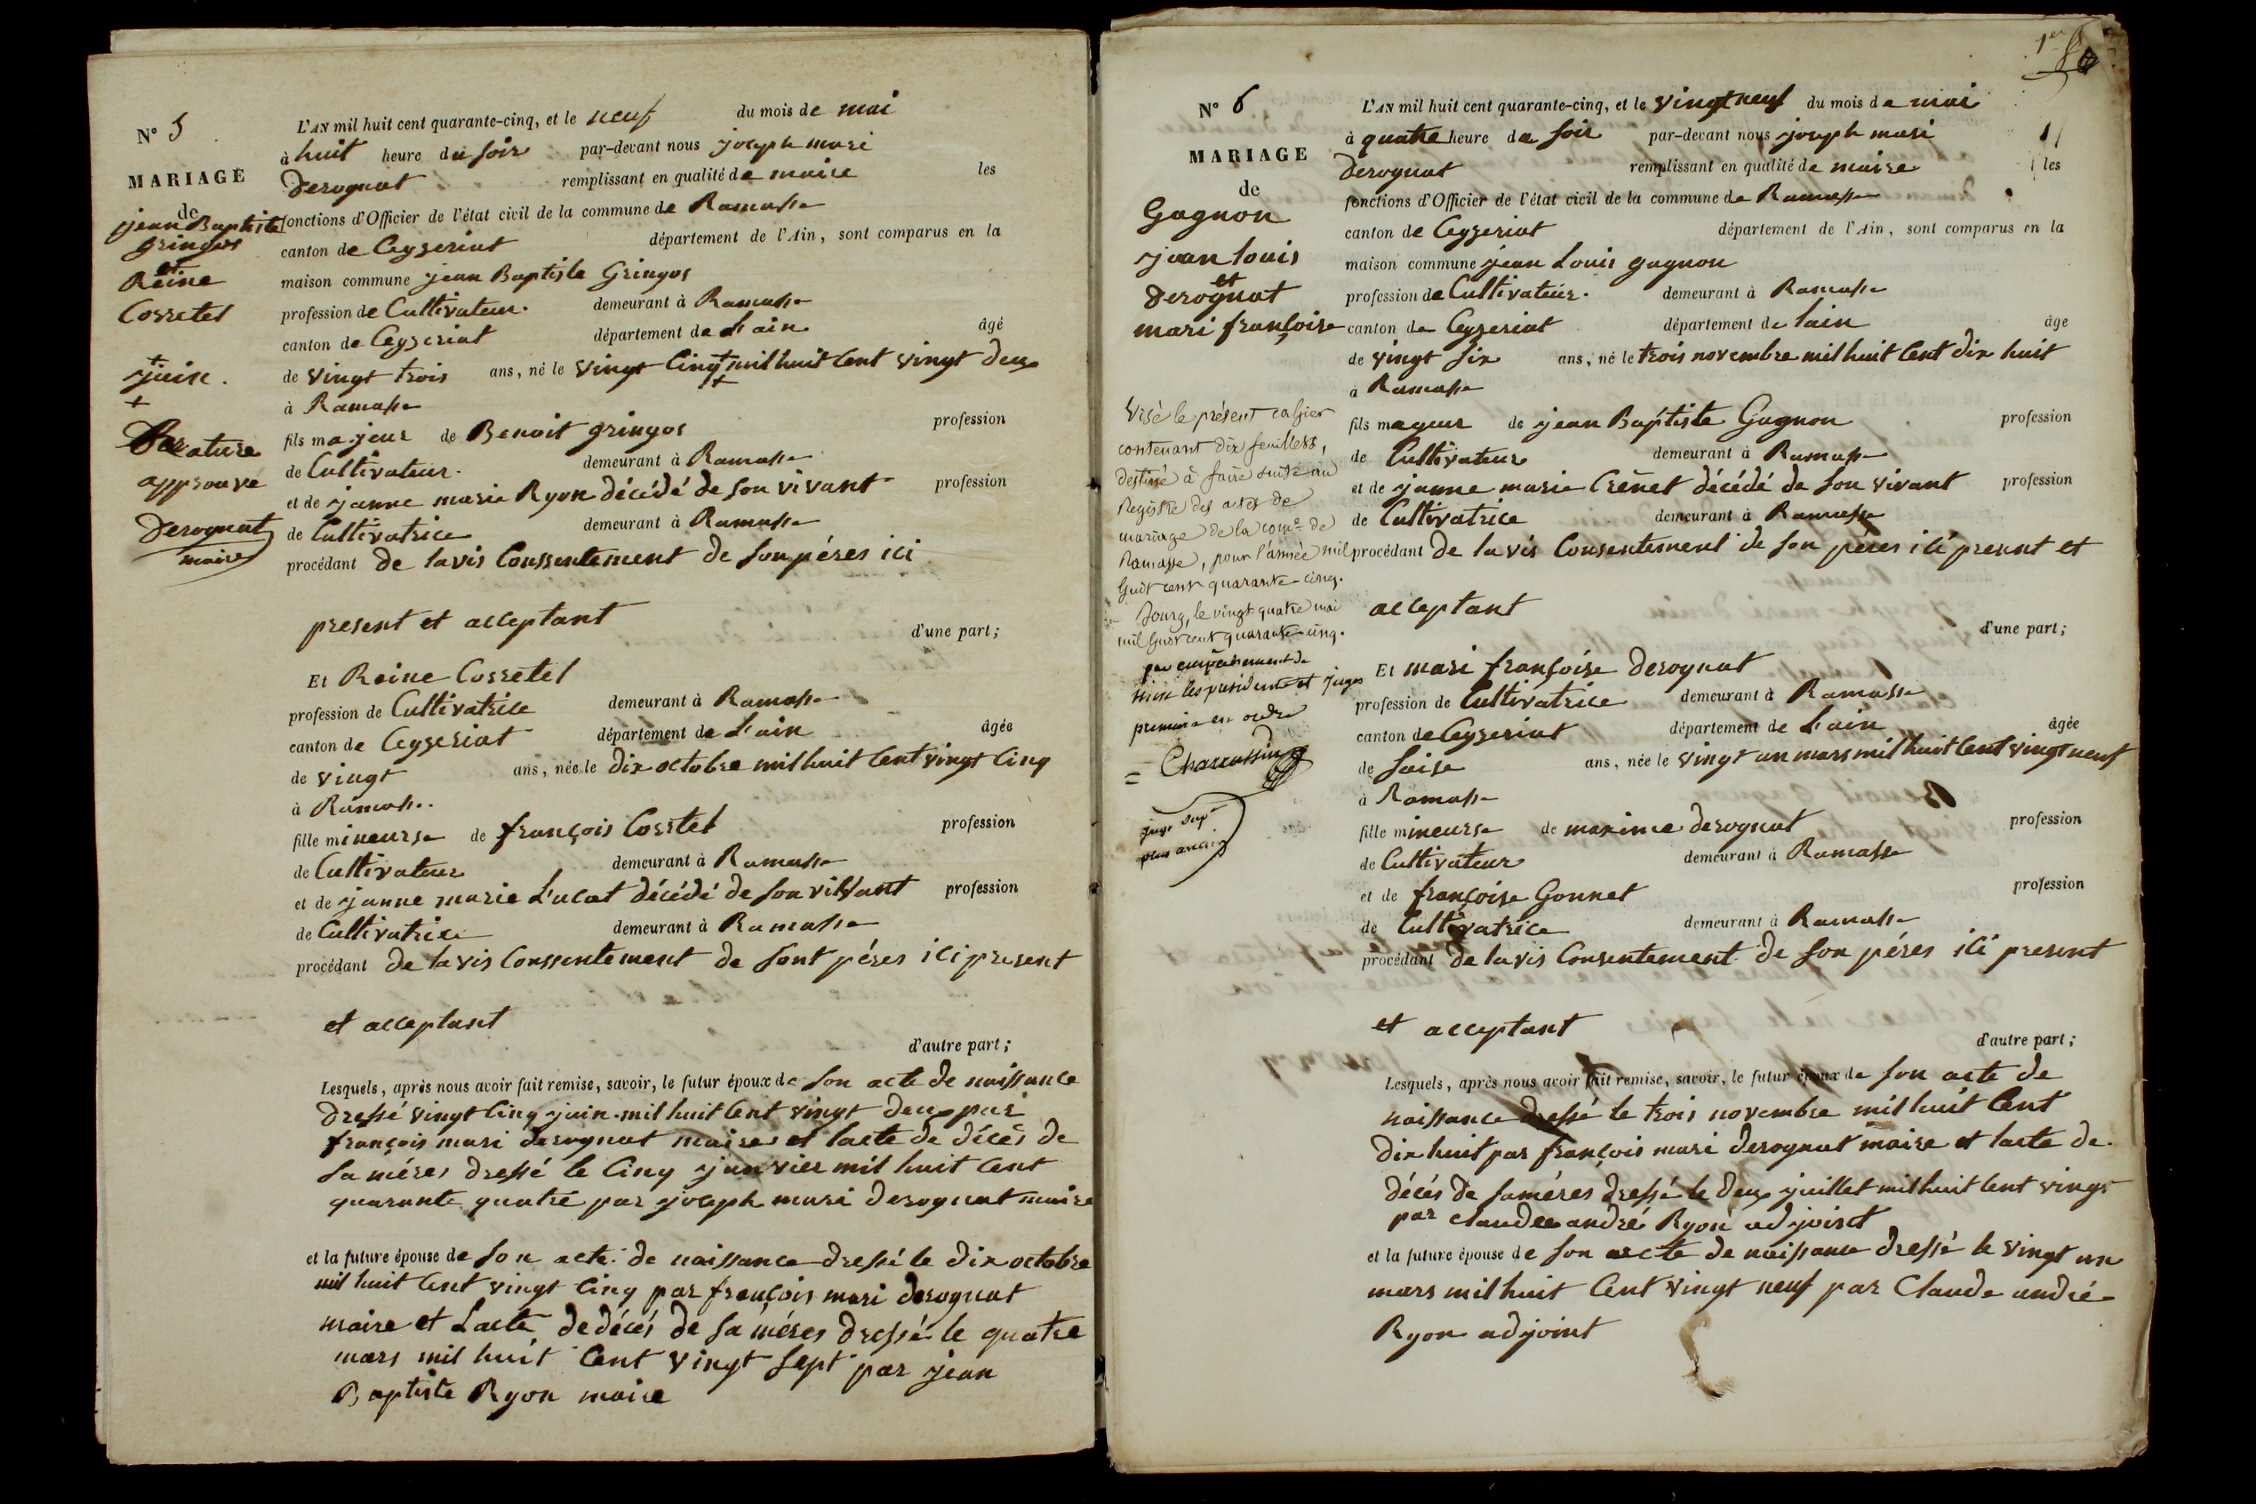 N° 5
MARIAGE
de
jean Baptiste
gringos
et
Reine
Corretel
+
juin.
+
Rature
approuvé
Derognat
maire
L'AN mil huit cent quarante-cinq, et le neuf du mois de mai
à huit heure du soir par-devant nous joseph mari
Derognat remplissant en qualité de maire les
fonctions d'Officier de l'état civil de la commune de Ramasse
canton de Ceyzeriat département de l'Ain, sont comparus en la
maison commune jean Baptiste Gringos
profession de Cultivateur. demeurant à Ramasse
canton de Ceyzeriat département de L'ain âgé
de vingt trois ans, né le vingt Cinq + mil huit Cent vingt deux
à Ramasse
fils majeur de Benoit gringos profession
de Cultivateur. demeurant à Ramasse
et de janne marie Ryon décédé de son vivant profession
de Cultivatrice demeurant à Ramasse
procédant de lavis Conssentement de son péres ici
present et acceptant
d'une part;
Et Reine Corretel
profession de Cultivatrice demeurant à Ramasse
canton de Ceyzeriat département de L'ain âgée
de vingt ans, née le dix octobre mil huit Cent vingt Cinq
à Ramasse.
fille mineurse de françois Corrtel profession
de Cultivateur demeurant à Ramasse
et de janne marie Lucat décédé de son vilvant profession
de Cultivatrice demeurant à Ramasse
procédant de lavis Conssentement de sont péres ici present
et acceptant
d'autre part;
Lesquels, après nous avoir fait remise, savoir, le futur époux de son acte de naissance
dressé vingt Cinq juin mil huit Cent vingt deux par
françois mari derognat maire et lacte de décès de
sa méres dressé le Cinq janvier mil huit Cent
quarante quatre par joseph mari derognat maire
et la future épouse de son acte de naissance dressé le dix octobre
mil huit Cent vingt Cinq par françois mari derognat
maire et Lacte de décés de sa méres dressé le quatre
mars mil huit Cent vingt sept par jean
Baptiste Ryon maire
1er
N° 6
MARIAGE
de
Gagnon
jean louis
et
Derognat
mari françoise
Visé le présent cahier
contenant dix feuillets,
destiné à faire suite au
Registre des actes de
mariage de la come de
Ramasse, pour l'année mil
huit cent quarante-cinq.
Bourg, le vingt quatre mai
mil huit cent quarante-cinq.
par empêchement de
MM les president et juges
premiers en ordre
Charcotting
juge sup
plus ancien
L'AN mil huit cent quarante-cinq, et le vingt neuf du mois de mai
à quatre heure du soir par-devant nous joseph mari
Derognat remplissant en qualité de maire les
fonctions d'Officier de l'état civil de la commune de Ramasse
canton de Ceyzeriat département de l'Ain, sont comparus en la
maison commune jean Louis gagnon
profession de Cultivateur. demeurant à Ramasse
canton de Ceyzeriat département de lain âgé
de vingt six ans, né le trois novembre mil huit Cent dix huit
à Ramasse
fils mageur de jean Baptiste Gagnon profession
de Cultivateur demeurant à Ramasse
et de janne marie Crênet décédé de son vivant profession
de Cultivatrice demeurant à Ramasse
procédant de lavis Consentement de son péres ici present et
acceptant
d'une part;
Et mari françoise derognat
profession de Cultivatrice demeurant à Ramasse
canton de Ceyzeriat département de L'ain âgée
de saise ans, née le vingt un mars mil huit Cent vingt neuf
à Ramasse
fille mineurse de maxime derognat profession
de Cultivateur demeurant à Ramasse
et de françoise Gonnet profession
de Cultivatrice demeurant à Ramasse
procédant de lavis Consentement de son péres ici present
et acceptant
d'autre part;
Lesquels, après nous avoir fait remise, savoir, le futur époux de son acte de
naissance dressé le trois novembre mil huit Cent
dix huit par françois mari derognat maire et lacte de
décés de saméres dressé le deux juillet mil huit Cent vingt
par claude andré Ryon adjoint
et la future épouse de son acte de naissance dressé le vingt un
mars mil huit Cent vingt neuf par Claude andré
Ryon adjoint